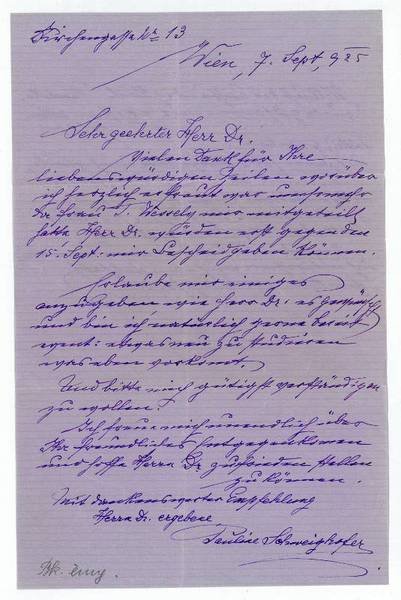 Kirchengasse Nr 13
Wien, 7. Sept. 925
Sehr geehrter Herr Dr.
Vielen Dank für Ihre
liebenswürdigen Zeilen worüber
ich herzlich erfreut war umsomehr
da Frau J. Wessely mir mitgeteilt
hätte Herr Dr. würden erst gegen den
15. Sept. mir Bescheid geben können.
Erlaube mir einiges
anzugeben wie Herr Dr. es gewünscht
und bin ich natürlich gerne bereit
event. etwas neu zu studieren
was eben vorkomt.
Und bitte mich gütigst verständigen
zu wollen.
Ich freue mich unendlich über
Ihr freundliches Entgegenkomen
und hoffe Herrn Dr. zufrieden stellen
zu können.
Mit dankenswerter Empfehlung
Herrn Dr. ergebene
Pauline Schweighofer